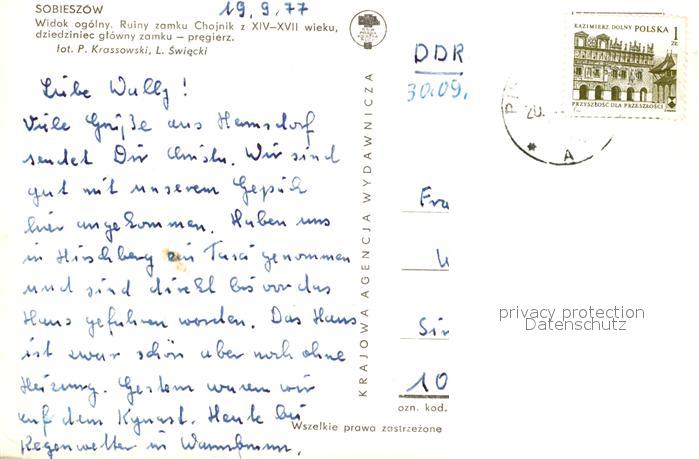 SOBIESZÓW
19.9.77
Widok ogólny. Ruiny zamku Chojnik z XIV–XVII wieku,
dziedziniec główny zamku – pręgierz.
fot. P. Krassowski, L. Święcki
Liebe Wally!
Viele Grüße aus Hermsdorf
sendet Dir Christa. Wir sind
gut mit unserem Gepäck
hier angekommen. Haben uns
in Hirschberg ein Taxi genommen
und sind direkt bis vor das
Haus gefahren worden. Das Haus
ist zwar schön aber noch ohne
Heizung. Gestern waren wir
auf dem Kynast. Heute bei
Regenwetter in Warmbrunn.
KRAJOWA AGENCJA WYDAWNICZA
DDR
30.09.
Fra
Sir
10
ozn. kod.
Wszelkie prawa zastrzeżone
KAZIMIERZ DOLNY POLSKA
1
ZŁ
PRZYSZŁOŚĆ DLA PRZESZŁOŚCI
20.
A
privacy protection
Datenschutz